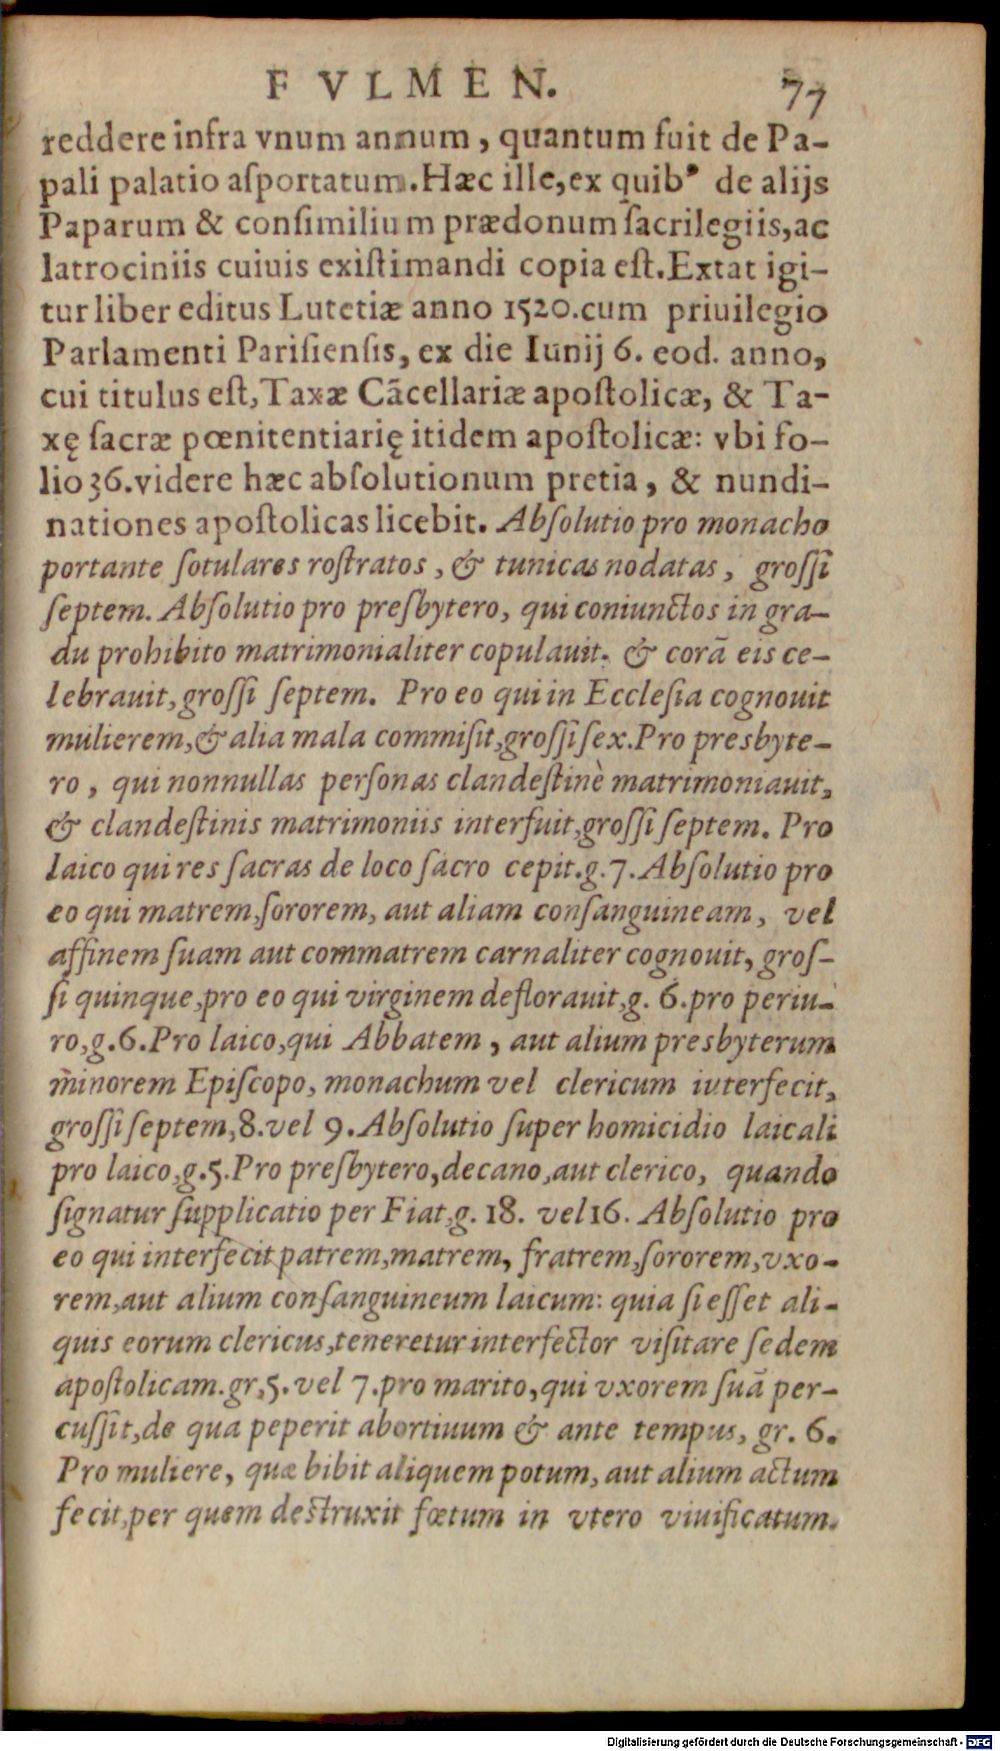 FVLMEN. 77
reddere infra vnum annum, quantum fuit de Pa-
pali palatio aſportatum. Hæc ille, ex quibꝰ de alijs
Paparum & conſimilium prædonum ſacrilegiis, ac
latrociniis cuiuis exiſtimandi copia eſt. Extat igi-
tur liber editus Lutetiæ anno 1520. cum priuilegio
Parlamenti Pariſienſis, ex die Iunij 6. eod. anno,
cui titulus eſt, Taxæ Cãcellariæ apoſtolicæ, & Ta-
xę ſacræ pœnitentiarię itidem apoſtolicæ: vbi fo-
lio 36. videre hæc abſolutionum pretia, & nundi-
nationes apoſtolicas licebit. Abſolutio pro monacho
portante ſotulares roſtratos, & tunicas nodatas, groſſi
ſeptem. Abſolutio pro presbytero, qui coniunctos in gra-
du prohibito matrimonialiter copulauit. & corã eis ce-
lebrauit, groſſi ſeptem. Pro eo qui in Eccleſia cognouit
mulierem, & alia mala commiſit, groſſi ſex. Pro presbyte-
ro, qui nonnullas perſonas clandeſtinè matrimoniauit,
& clandeſtinis matrimoniis interfuit, groſſi ſeptem. Pro
laico qui res ſacras de loco ſacro cepit. g. 7. Abſolutio pro
eo qui matrem, ſororem, aut aliam conſanguineam, vel
affinem ſuam aut commatrem carnaliter cognouit, groſ-
ſi quinque, pro eo qui virginem deflorauit, g. 6. pro periu-
ro, g. 6. Pro laico, qui Abbatem, aut alium presbyterum
minorem Epiſcopo, monachum vel clericum iuterfecit,
groſſi ſeptem, 8. vel 9. Abſolutio ſuper homicidio laicali
pro laico, g. 5. Pro presbytero, decano, aut clerico, quando
ſignatur ſupplicatio per Fiat, g. 18. vel 16. Abſolutio pro
eo qui interfecit patrem, matrem, fratrem, ſororem, vxo-
rem, aut alium conſanguineum laicum: quia ſi eſſet ali-
quis eorum clericus, teneretur interfector viſitare ſedem
apoſtolicam. gr, 5. vel 7. pro marito, qui vxorem ſuã per-
cuſſit, de qua peperit abortiuum & ante tempus, gr. 6.
Pro muliere, quæ bibit aliquem potum, aut alium actum
fecit, per quem deſtruxit fœtum in vtero viuificatum.
Digitalisierung gefördert durch die Deutsche Forschungsgemeinschaft - DFG